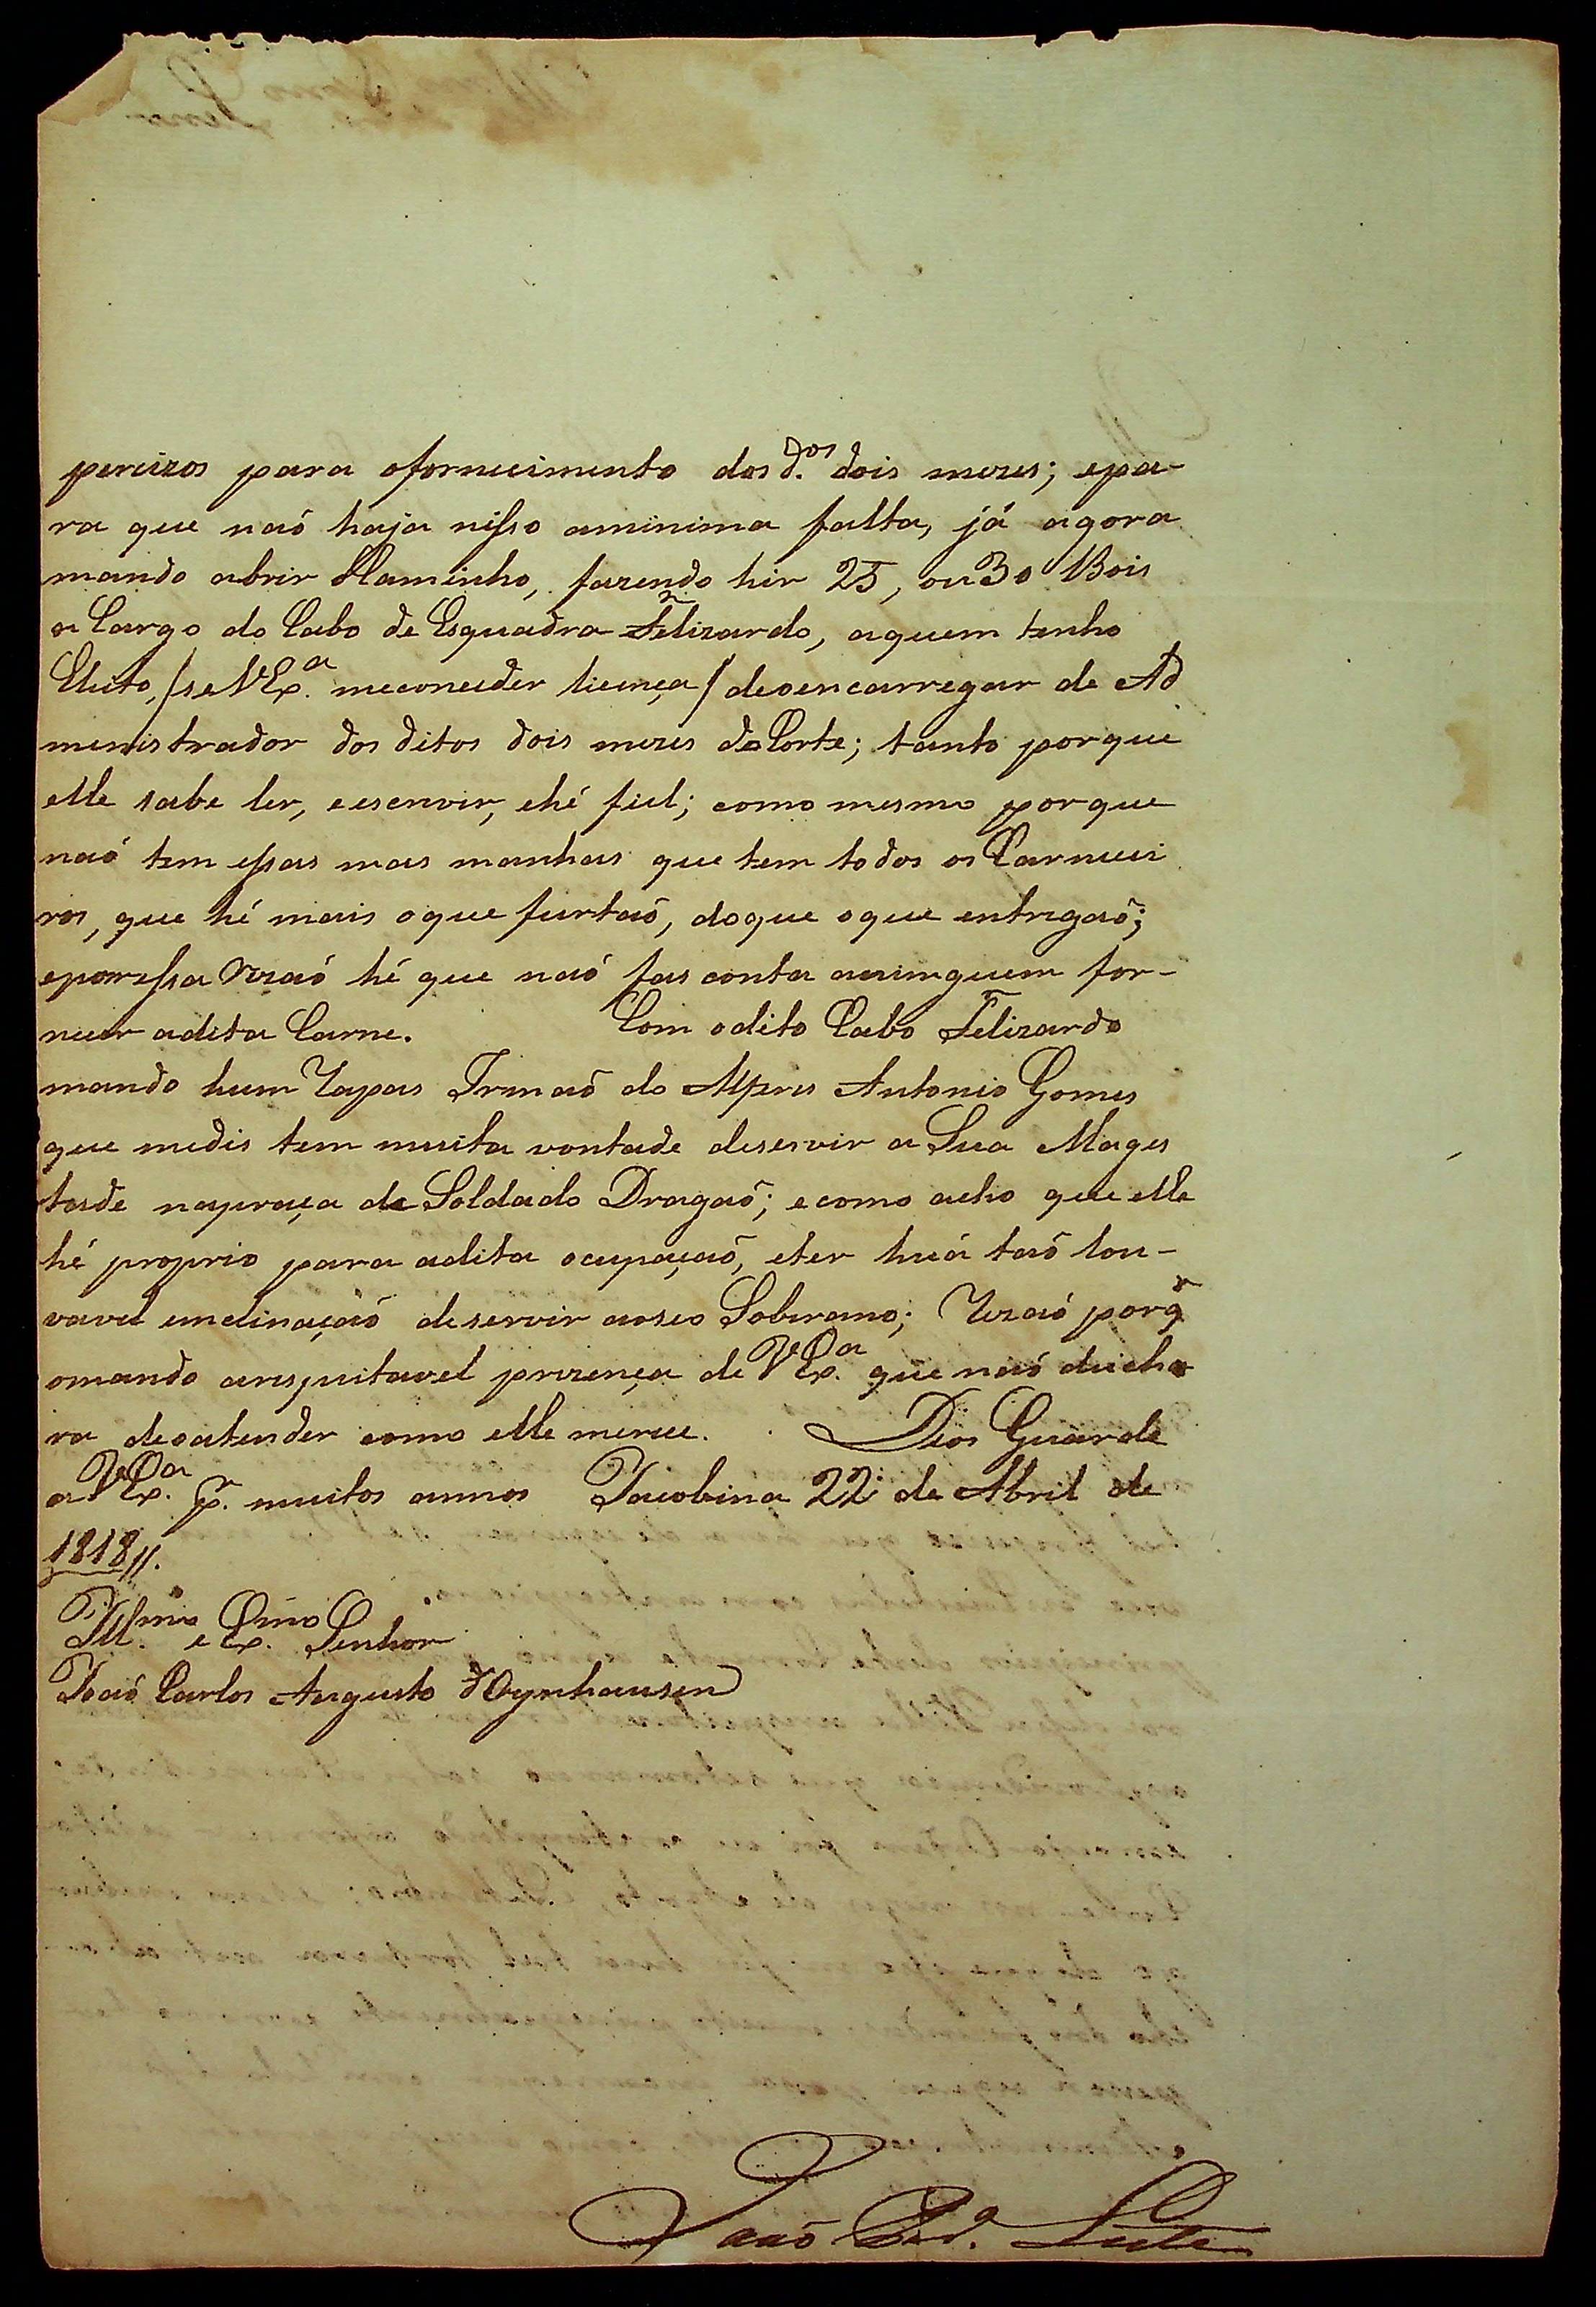 percizos para ofornecimento dos d.os dois mezes; epa-
ra que naõ haja nisso aminima falta, já agora
mando abrir Haminho, fazendo hir 25, ou 30 Bois
a Cargo do Cabo de Esquadra Felizardo, aquem tenho
Eleito, /se VEx.a meconceder licença/ deoencarregar de Ad
menistrador dos ditos dois mezes de Corte; tanto porque
elle sabe ler, eescrevir, ehé fiel; como mesmo porque
naõ tem essas mas manhas que tem todos os Carnicei
ros, que hé mais oque furtaõ, doque oque entregaõ;
eporessa Rezaõ hé que naõ fas conta aninguem for-
necer adita Carne. Com odito Cabo Felizardo
mando hum Rapas Irmaõ do Alferes Antonio Gomes
que medis tem muita vontade deservir a Sua Mages
tade napraça de Soldado Dragaõ; ecomo acho que elle
hé proprio para adita ocupaçaõ, eter huá taõ lou-
vavel enclinaçaõ deservir aoseo Soberano; Rezaõ porq̃
omando arespeitavel prezença de VEx.a que naõ deicha
ra deoatender como elle merece. Deos Guarde
a VEx.a p.r muitos annos Jacobina 22 de Abril de
1818//.
Ill.mo e Ex.mo Senhor
Joaõ Carlos Augusto d'Oynhausen
Joaõ Leite